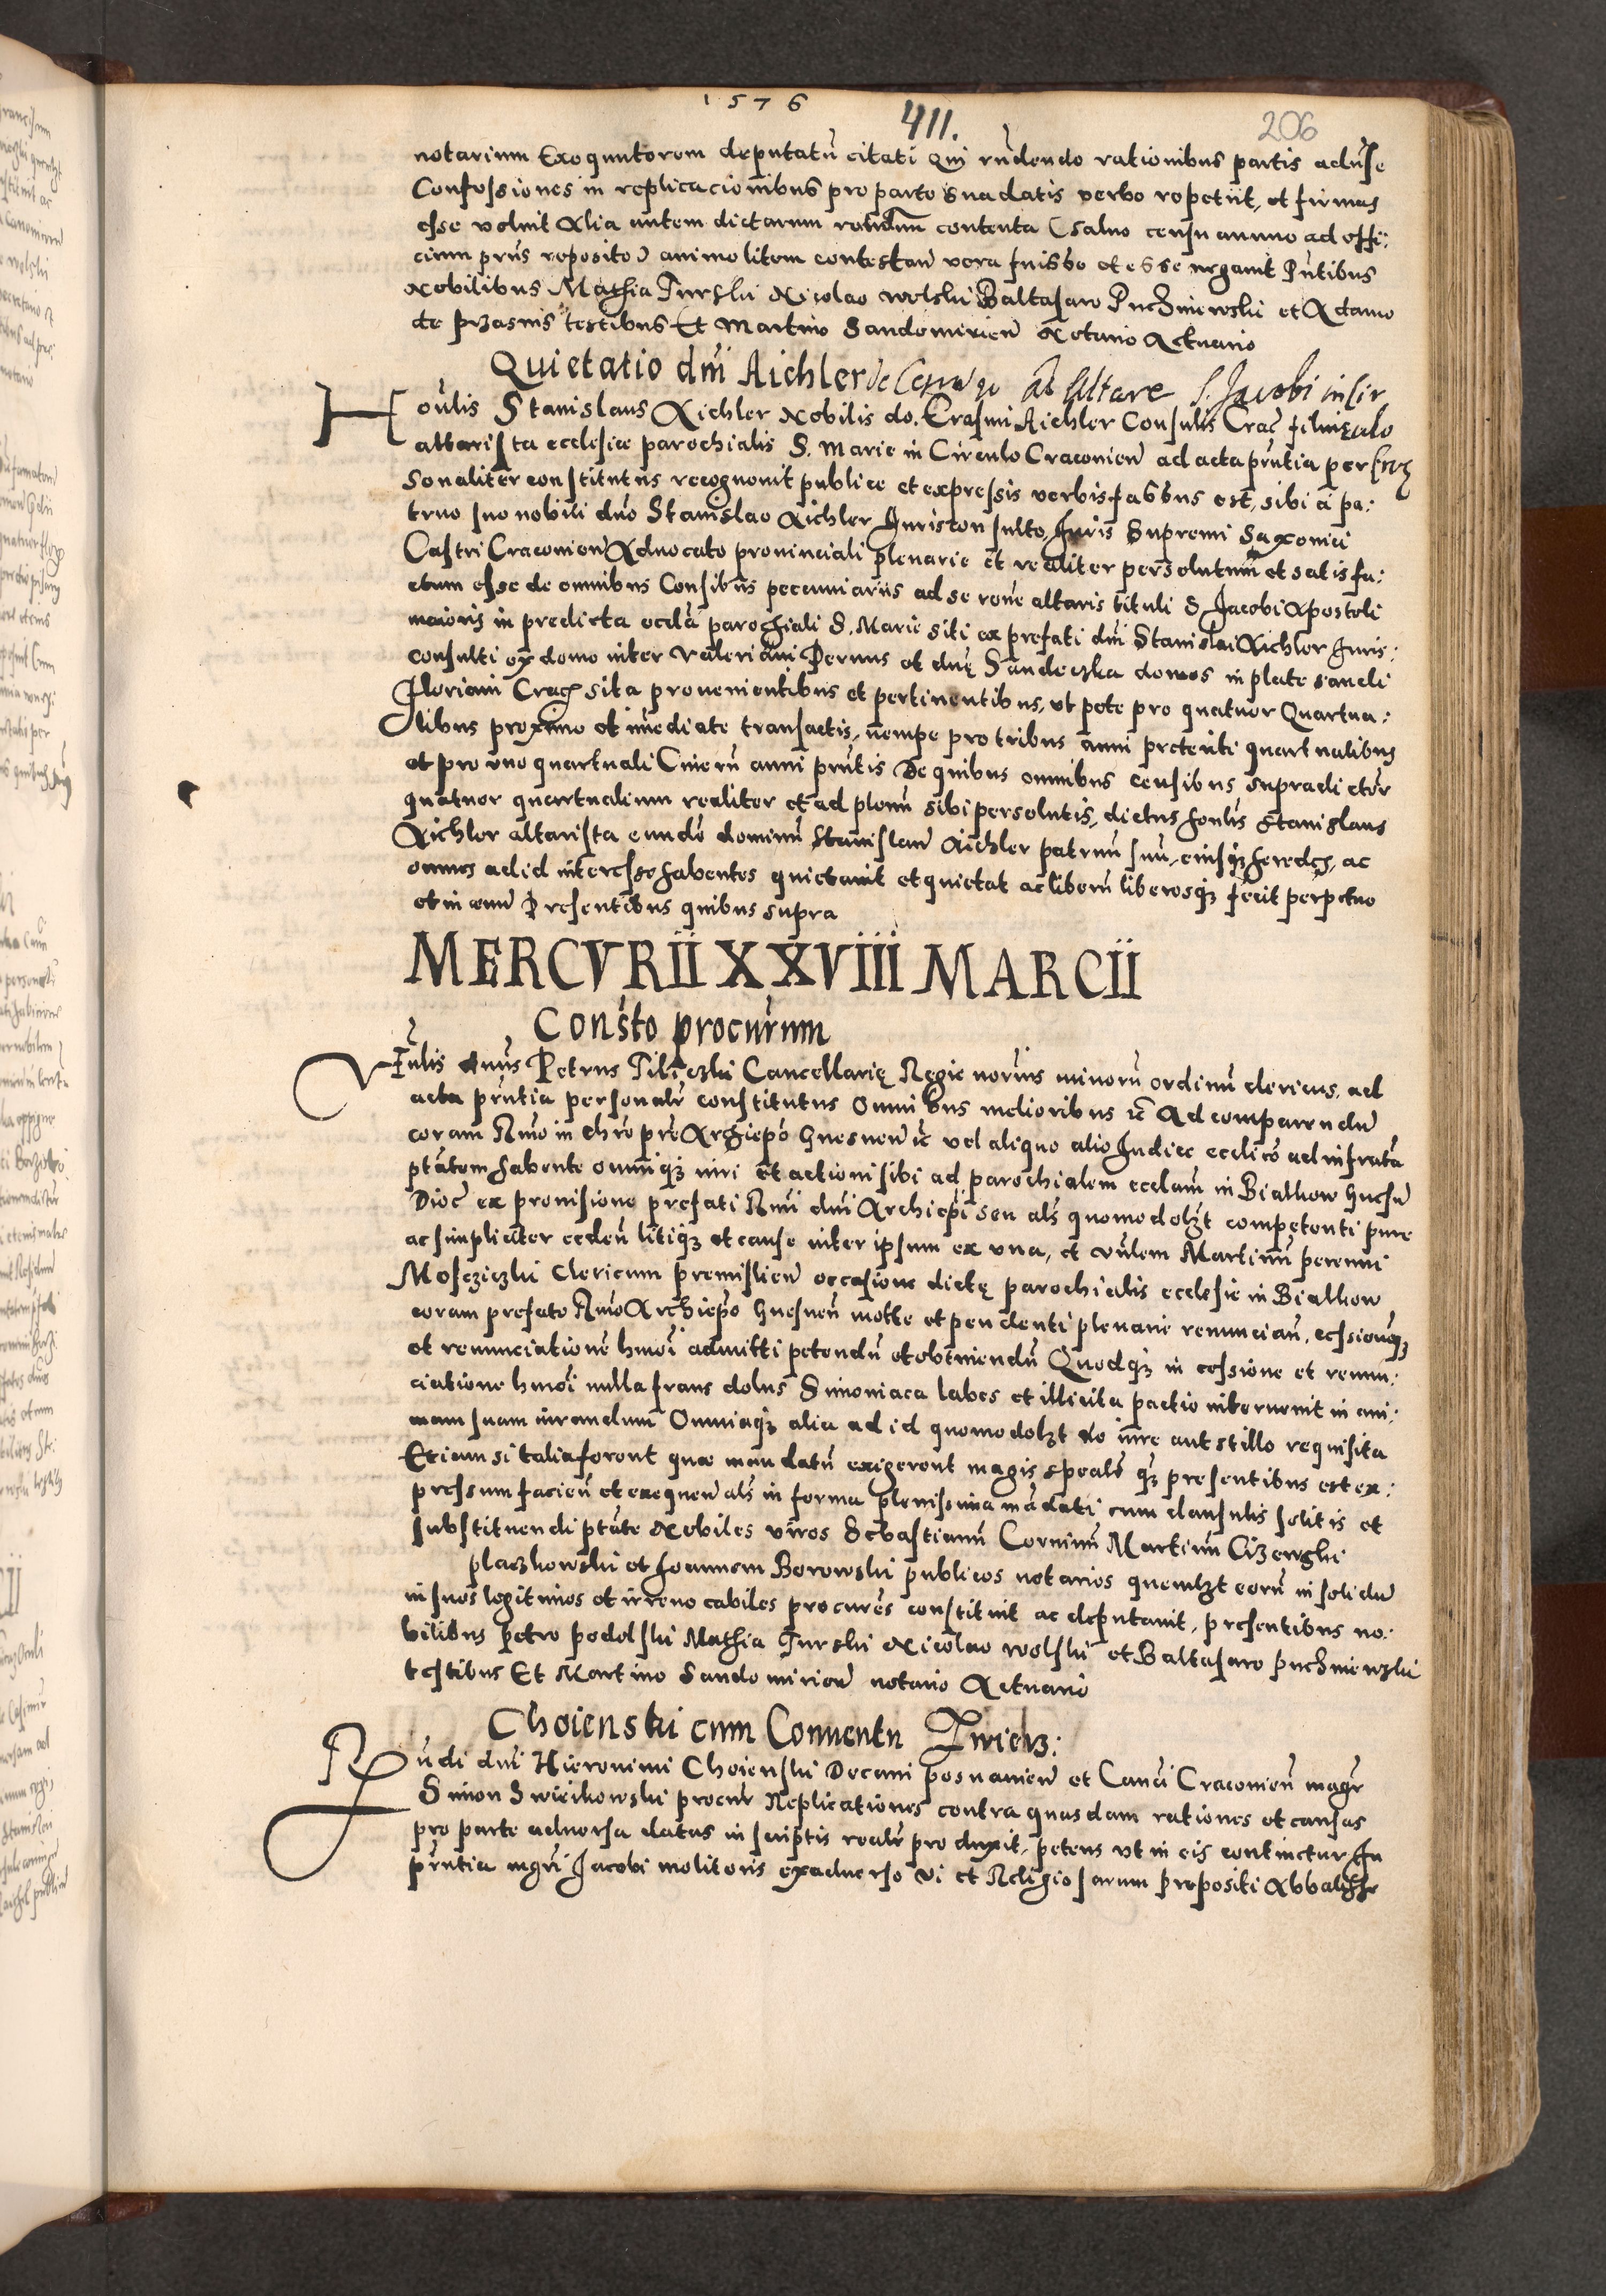 1576
411.
206
notarium Exequutorem deputatū citati Qui rn̄dendo rationibus partis aduſe
Confeſsiones in replicacionibus pro parte sua datis verbo repetiit, et firmas
eſse voluit Alia autem dictarum contenta (saluo censu annuo ad offi:
cium prius reposito) animo litem contestan̄ vera fuisse et esse negauit Pn̄tibus
Nobilibus Mathia Turski Nicolao wolski Baltaſaro Puchniewski et Adamo
de przasnis testibus Et Martino Sandomirien̄ Notario Actuario
Quietatio dn̄i Aichler de Censu ad Altare S. Jacobi in Cir
culo
Honlis Stanislaus Aichler Nobilis do. Eraſmi Aichler Conſulis Crac̄ filius
altariſta eccleſiæ parochialis S. Marie in Circulo Cracouien̄ ad acta prn̄tia per
Sonaliter conſtitutus recognouit publice et expreſsis verbis faſsus est, sibi a pa:
truo ſuo nobili dn̄o Stanislao Aichler Juriscon ſulto, Juris Supremi Saxonici
Caſtri Cracouien̄ Aduocato prouinciali plenarie et realiter persolutum et satisfa:
ctum eſse de omnibus Censibus pecuniariis ad se rōne altaris tituli S. Jacobi Apostoli
maioris in predicta eccl̄a parochiali S. Marie siti ex prefati dn̄i Stanislai Aichler Juris:
conſulti ex domo inter Valeriani Pernus et dn̄ę Sandeczka domos in platea sancti
Floriani Crac̄ sita prouenientibus et pertinentibus, ut pote pro quatuor Quartua:
libus proximo et im̄ediate tranſactis, nempe pro tribus anni preteriti quartualibus
et pro uno quartuali Cinerū anni prn̄tis De quibus omnibus censibus supradictor
quatuor quartualium realiter et ad plenū sibi persolutis, dictus honlis Stanislaus
Aichler altariſta eundē dominū Stanislaū Aichler patruū ſuū, eiusq̨ heredes, ac
omnes ad id intereſse habentes quietauit et quietat ac liberū liberosq̨ fecit perpetuo
et in æuū Preſentibus quibus supra
MERCVRII XXVIII MARCII
Consto procurum
Vn̄lis dn̄us Petrus Pilieczki Cancellarię Regie notarius minorū ordinū clericus, ad
acta prn̄tia personalr conſtitutus Omnibus melioribus ec̄ Ad comparendū
coram Rmo in chro pre Archiepo Gnesnen̄ ec̄ vel aliquo alio Judice eccl̄ico ad infrata
ptatem habente omniq̨ iuri et actioni sibi ad parochialem eccl̄am in Bialkow Gnesn̄
Dioc̄ ex prouisione prefati Rmi dn̄i Archiepi seu als quomodolʒt competenti pure
ac ſimpliciter ceden̄ litiq̨ et cauſe inter ipsum ex una, et vn̄lem Martinū perenni
Moſcziczki Clericum premislien̄ occaſione dictę parochialis eccleſie in Bialkow
coram prefato Rmo Archiepo Gnesnen̄ motte et pendenti plenarie renuncian̄, ceſsionēq̨
et renunciationē hmōi admitti petendū et obtinendū Quodq̨ in ceſsione et renun:
ciatione hmōi nulla fraus dolus Simoniaca labes et illicita pactio interuenit in ani:
mam ſuam iurandum Omniaq̨ alia ad id quomodolʒt de iure aut stillo requiſita
Etiam si talia forent quæ mandatū exigerent magis spealē q̨ preſentibus est ex:
preſsum facien̄ et exequen̄ als in forma pleniſsima mādati cum clauſulis ſolitis et
ſubſtituendi ptāte Nobiles viros Sebastianū Coruinū Martinū Cizewski
placzkowski et Joannem Borowski publicos notarios quemlʒt eorū in ſolidū
in ſuos legitimos et irreuocabiles procures conſtituit ac deputauit, preſentibus no:
bilibus Petro podolſki Mathia Turski Nicolao wolſki et Baltaſaro puchniewski
teſtibus Et Martino Sandomirien̄ notario Actuario
Choienski cum Conuentu Zwierz:
Rūdi dn̄i Hieronimi Choienſki Decani poſnanien̄ et Canci Cracouien̄ magr
Simon Swieikowski procur Replicationes contra quasdam rationes et cauſas
pro parte aduersa datas in scriptis realr produxit, petens ut in eis continetur In
prn̄tia mgri Jacobi molitoris ex aduerso vi et Religioſarum Prepositi Abbatiſse